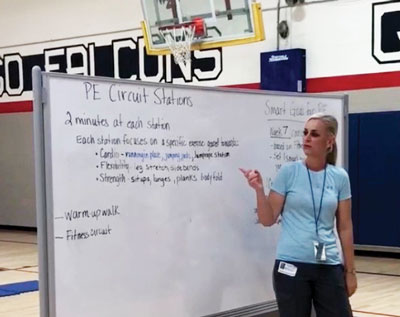 SO FALCONS
PE Circuit Stations
2 minutes at each station
Each station focuses on a specific exercise towards:
• Cardio - running in place, jumping jacks, jumprope station
• Flexibility - leg stretch, side bends
• Strength - situps, lunges, planks, body fold
- Warm up walk
- Fitness circuit
Smart Goals for
Week 7